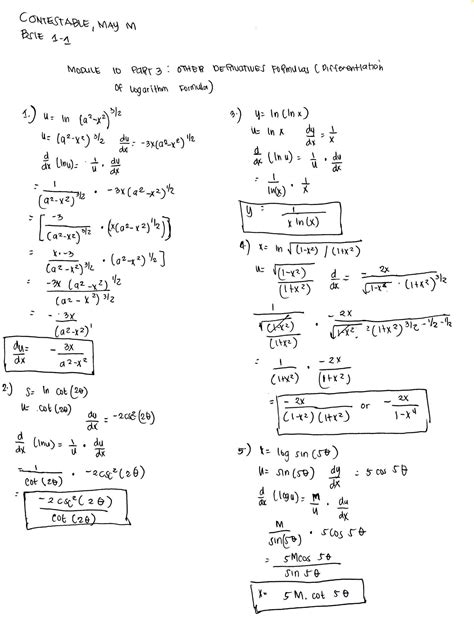 CONTESTABLE, MAY M
BSIE 1-1
MODULE 10 PART 3: OTHER DERIVATIVES FORMULAS (Differentiation
Of Logarithm Formula)
1.) u = ln (a²-x²)^3/2
u = (a²-x²)^3/2 du/dx = -3x(a²-x²)^1/2
d/dx (ln u) = 1/u · du/dx
= 1/(a²-x²)^3/2 · -3x(a²-x²)^1/2
= [-3/(a²-x²)^3/2 · (x(a²-x²)^1/2)]
= x·-3/(a²-x²)^3/2 · (a²-x²)^1/2]
= -3x (a²-x²)^1/2/(a²-x²)^3/2
= - 3x/(a²-x²)^1
du/dx = - 3x/a²-x²
2.) S = ln cot (2θ)
u = cot (2θ)
du/dx = -2csc² (2θ)
d/dx (ln u) = 1/u · du/dx
1/cot (2θ) · -2csc² (2θ)
= -2csc² (2θ)/cot (2θ)
3.) y = ln (ln x)
u = ln x dy/dx = 1/x
d/dx (ln u) = 1/u · du/dx
= 1/ln(x) · 1/x
y = 1/x ln (x)
4.) x = ln √(1-x²) / (1+x²)
u = √(1-x²)/(1+x²) d/dx = - 2x/√1-x² · (1+x²)^3/2
1/√(1-x²)/(1+x²) · - 2x/√1-x² · ²(1+x²)^3/2 -1/2 -1/2
= 1/(1+x²) · -2x/(1+x²)
= - 2x/(1-x²)(1+x²) or - 2x/1-x⁴
5.) x = log sin (5θ)
u = sin (5θ) dy/dx = 5 cos 5θ
d/dx (log u) = M/u · du/dx
M/sin(5θ) · 5cos 5θ
= 5Mcos 5θ/sin 5θ
x = 5M. cot 5θ